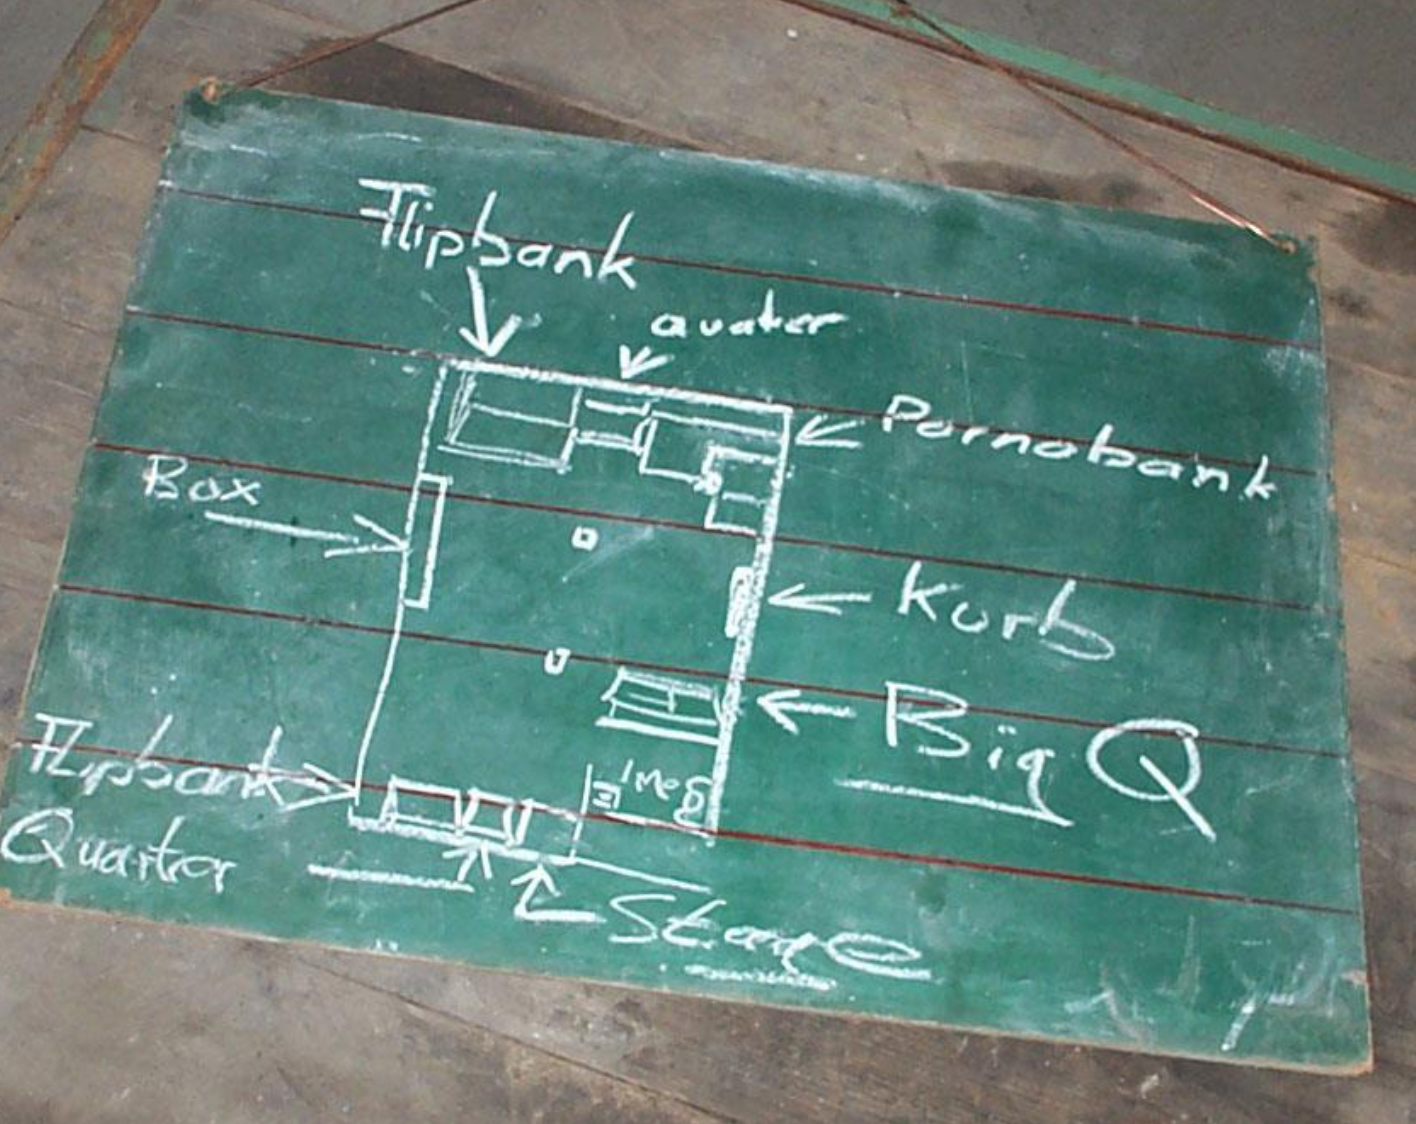 Flipbank
quater
Pornobank
Box
Korb
Big Q
Flipbank
Quarter
Stage